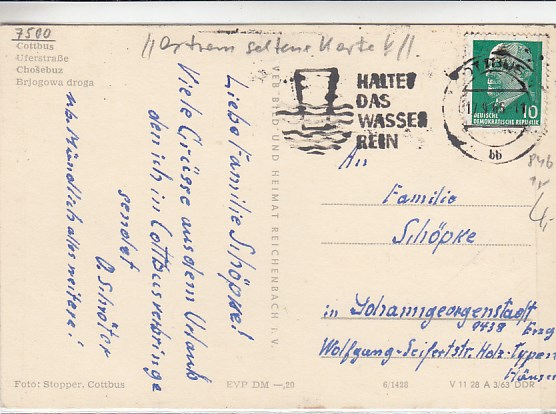 7500
!! extrem seltene Karte !!
Cottbus
Uferstraße
Chóśebuz
Brjogowa droga
Liebe Familie Schöpke!
Viele Grüsse aus dem Urlaub
den ich in Cottbus verbringe
sendet
O. Schröter
Mündlich alles weitere!
VEB BILD UND HEIMAT REICHENBACH I. V.
HALTET
DAS
WASSER
REIN
COTTBUS
bb
10
DEUTSCHE
DEMOKRATISCHE REPUBLIK
An
Familie
Schöpke
in Johanngeorgenstadt
9438 Erzg
Wolfgang-Seifertstr. Holz-Typen
Häuser
Foto: Stopper, Cottbus
EVP DM —,20
6/1428
V 11 28 A 3/63 DDR